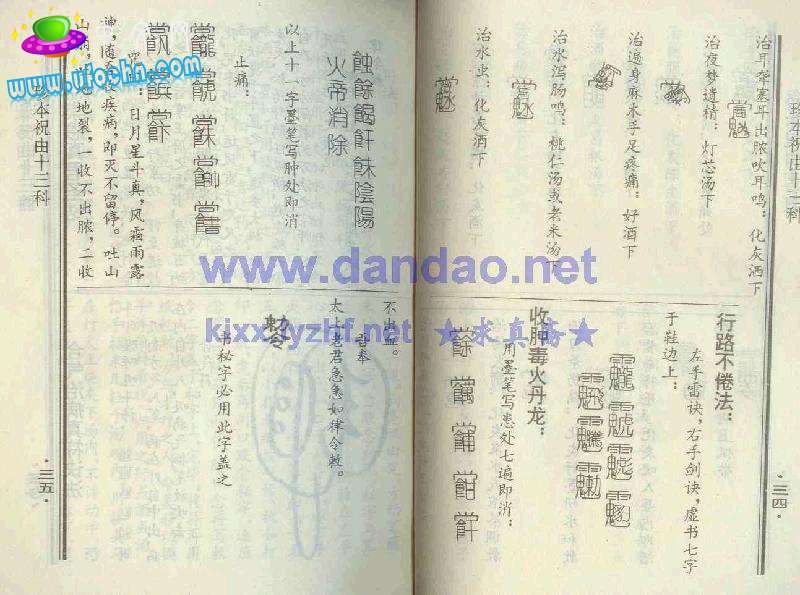 珍本祝由十三科
治耳聋塞耳出脓吹耳鸣：化灰酒下
治夜梦遗精：灯芯汤下
治遍身麻木手足疼痛：好酒下
治水泻肠鸣：桃仁汤或老米汤下
治水虫：化灰酒下
行路不倦法：
左手雷诀，右手剑诀，虚书七字
于鞋边上：
收肿毒火丹龙：
用墨笔写患处七遍即消：
·三四·
火帝消除
以上十一字墨笔写肿处即消
止痛：
日月星斗真，风霜雨露
疾病，即灭不留停。吐山
地裂，一收不出脓，二收
不出血。
香奉
太上老君急急如律令敕。
书秘字必用此字盖之
珍本祝由十三科
·三五·
www.ufochn.com
www.dandao.net
kixx.lyzhf.net ★求真斋★